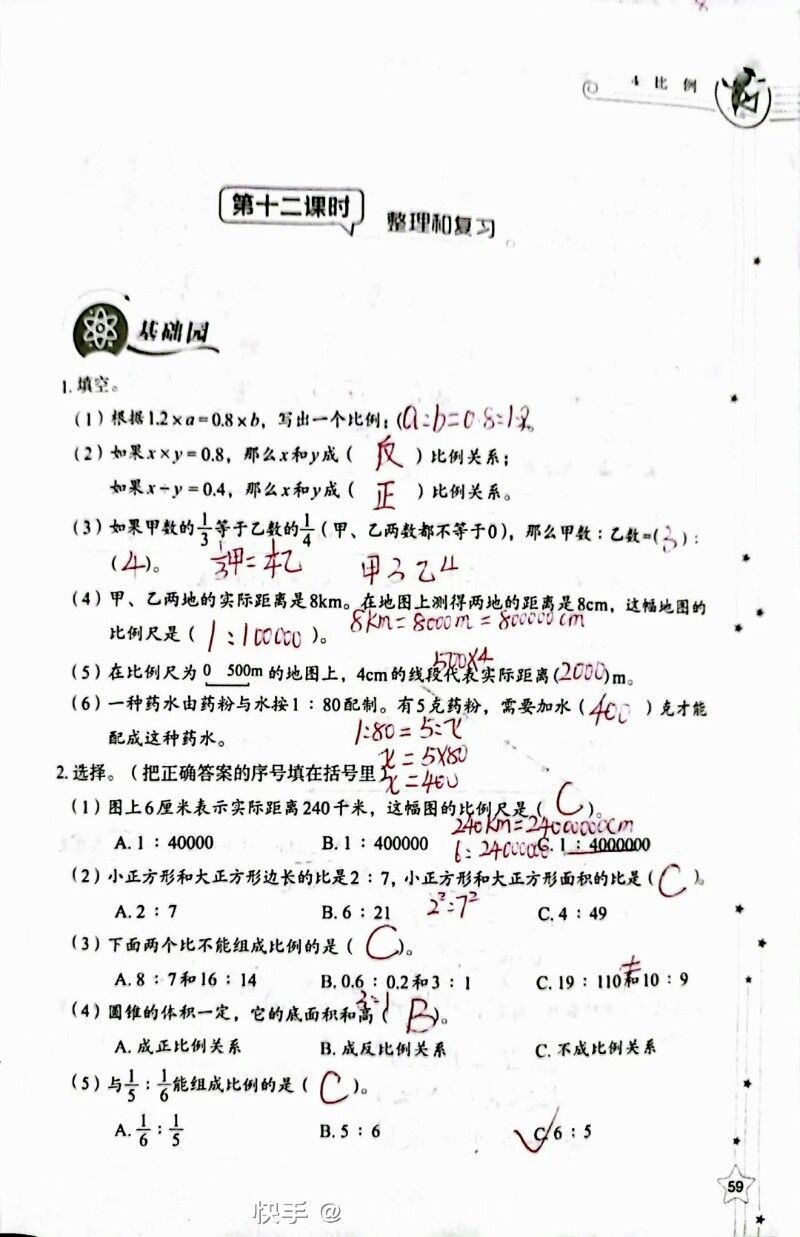 4 比 例
第十二课时 整理和复习
基础园
1.填空。
(1)根据1.2×a=0.8×b，写出一个比例：(a:b=0.8:1.2。
(2)如果x×y=0.8，那么x和y成( 反 )比例关系；
如果x÷y=0.4，那么x和y成( 正 )比例关系。
(3)如果甲数的1/3等于乙数的1/4(甲、乙两数都不等于0)，那么甲数：乙数=(3)：
(4)。 1/3甲=1/4乙 甲3 乙4
(4)甲、乙两地的实际距离是8km。在地图上测得两地的距离是8cm，这幅地图的
8km=8000m=800000cm
比例尺是(1:100000)。
500×4
(5)在比例尺为0 500m的地图上，4cm的线段代表实际距离(2000)m。
(6)一种药水由药粉与水按1：80配制。有5克药粉，需要加水(400)克才能
配成这种药水。 1:80=5:x
x=5×80
x=400
2.选择。(把正确答案的序号填在括号里)
(1)图上6厘米表示实际距离240千米，这幅图的比例尺是( C )。
240km=24000000cm
A.1：40000 B.1：400000 C.1：4000000
(2)小正方形和大正方形边长的比是2：7，小正方形和大正方形面积的比是( C )。
A.2：7 B.6：21 2²:7² C.4：49
(3)下面两个比不能组成比例的是( C )。
A.8：7和16：14 B.0.6：0.2和3：1 C.19：110和10：9
≠
3:1
(4)圆锥的体积一定，它的底面积和高( B )。
A.成正比例关系 B.成反比例关系 C.不成比例关系
(5)与1/5：1/6能组成比例的是( C )。
A.1/6：1/5 B.5：6 C.6：5
59
快手 @